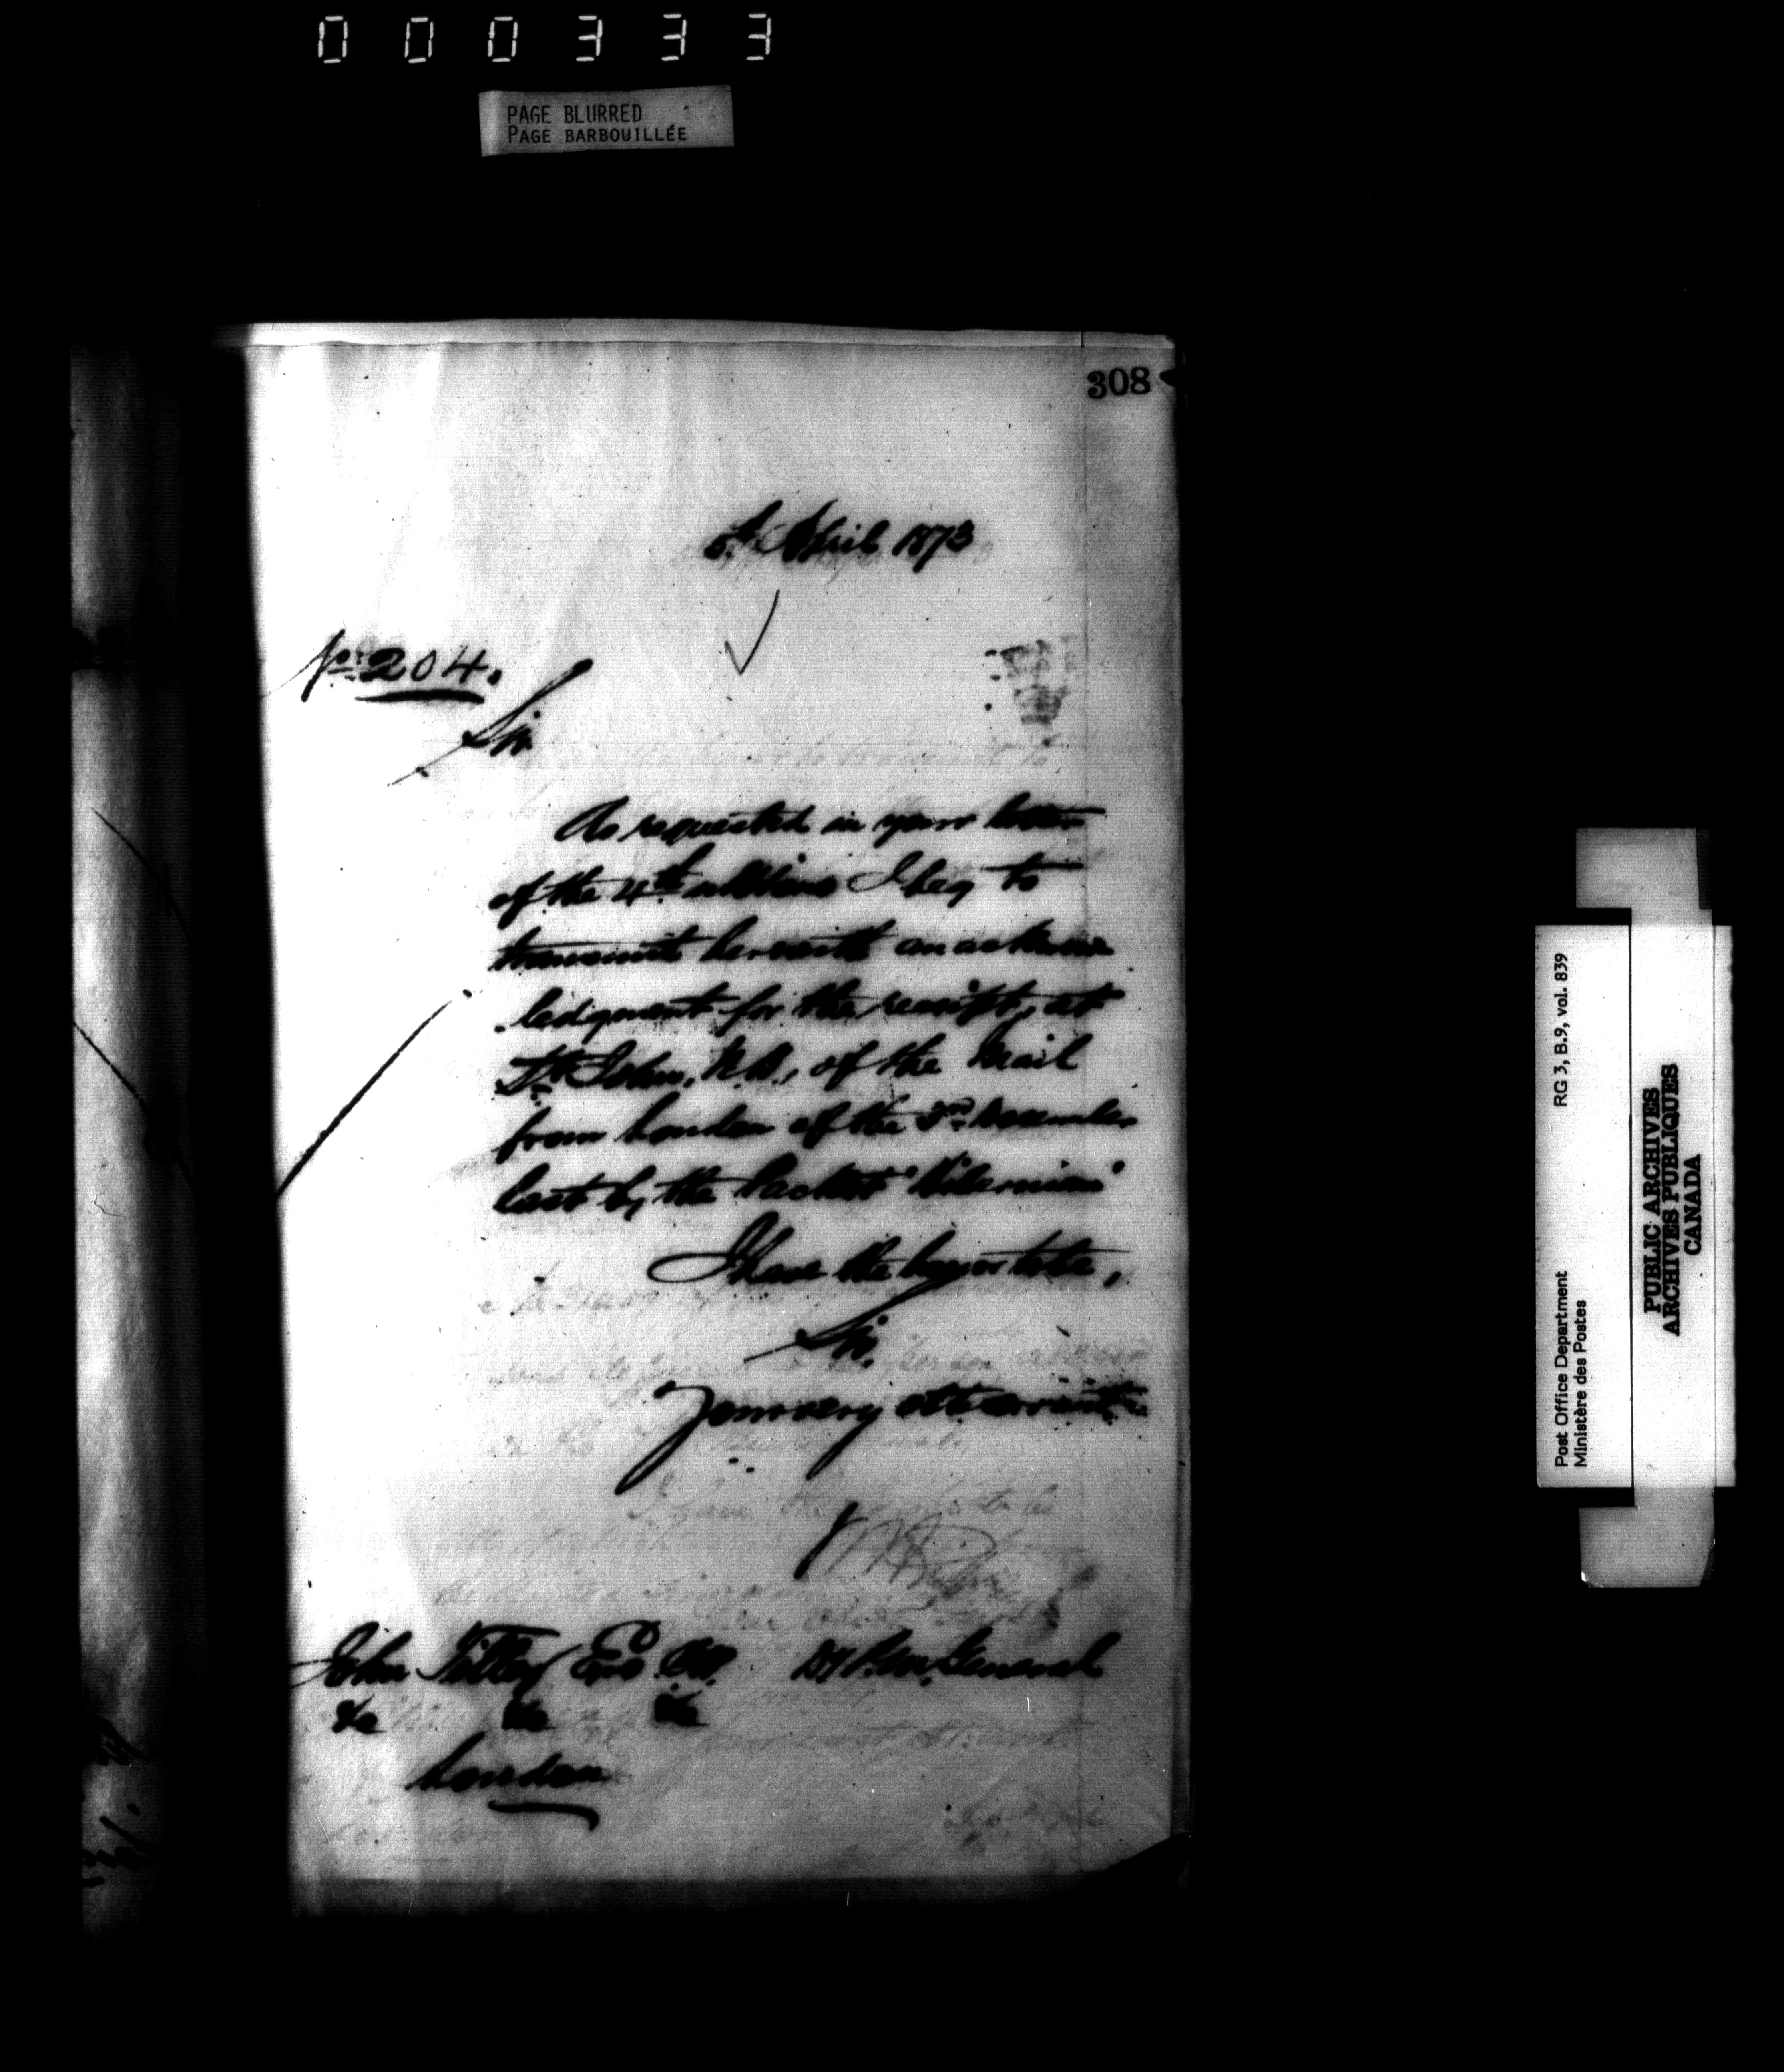 000333
PAGE BLURRED
PAGE BARBOUILLÉE
308
5th April 1873
No 204.
Sir
As requested in your letter
of the 4th ultimo I beg to
transmit herewith an acknow
ledgment for the receipt, at
St John, N.B., of the Mail
from London of the 3rd December
last by the Packet "Hibernian"
I have the honor to be,
Sir.
Your very obt servant
John Tilley Esq CB.
Dy P. Mr. General
&c &c &c
London
RG 3, B.9, vol. 839
Post Office Department
Ministère des Postes
PUBLIC ARCHIVES
ARCHIVES PUBLIQUES
CANADA